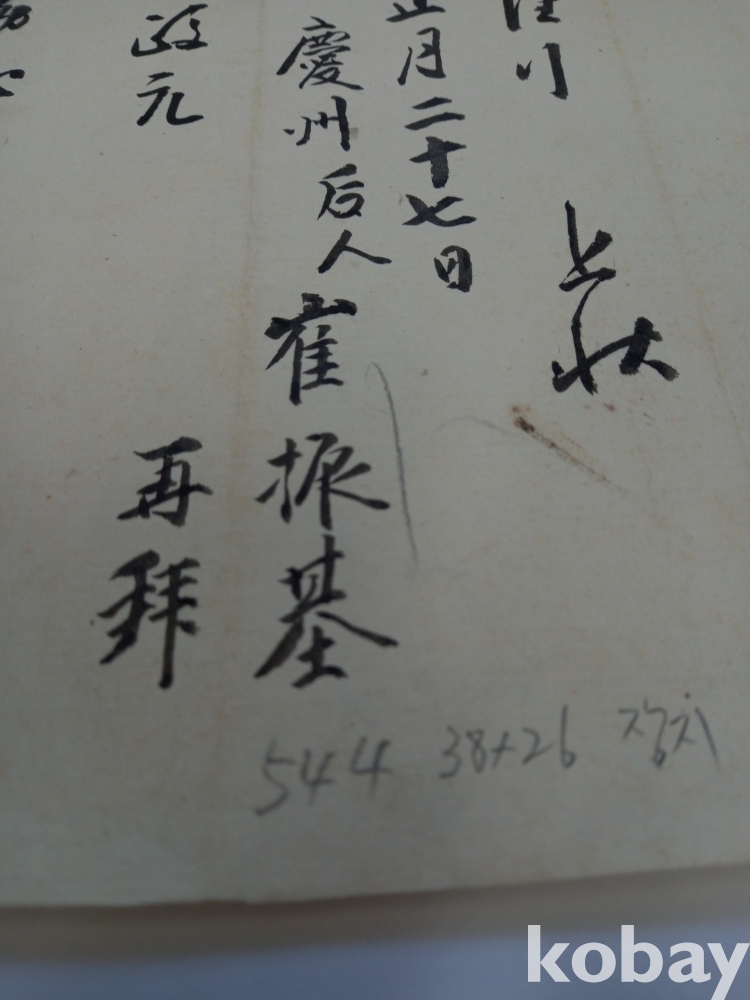 上狀
正月二十七日
慶州后人崔振基
再拜
544 38+26 장지
kobay